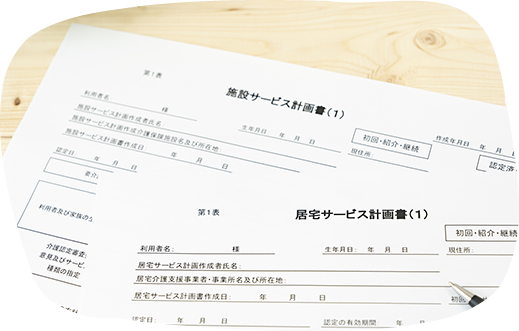 第1表
施設サービス計画書(1)
作成年月日
利用者名 様 生年月日 年 月 日 初回・紹介・継続
施設サービス計画作成者氏名
施設サービス計画作成介護保険施設名及び所在地 現住所
施設サービス計画書作成日 年 月 日
認定済
認定日 年 月 日
利用者及び家族の
介護認定審査
意見及びサービ
種類の指定
第1表
居宅サービス計画書(1)
初回・紹介・継続
利用者名: 様 生年月日: 年 月 日 現住所:
居宅サービス計画作成者氏名:
居宅介護支援事業者・事業所名及び所在地:
居宅サービス計画書作成日: 年 月 日 初回
認定日: 年 月 日 認定の有効期間 年 月 日